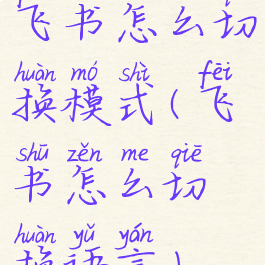 飞书怎么切
huàn mó shì fēi
换模式(飞
shū zěn me qiē
书怎么切
huàn yǔ yán
换语言)